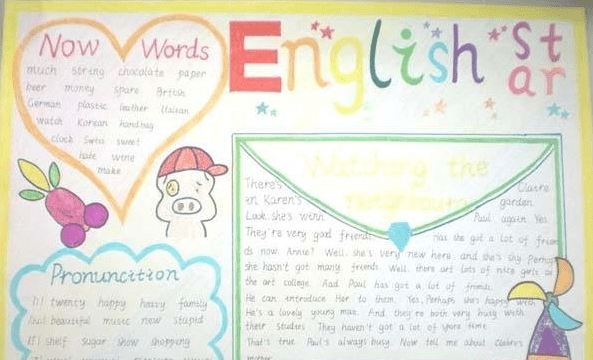 English
St
ar
Now Words
much string chocolate paper
beer money spare British
German plastic leather Italian
watch Korean handbag
clock Swiss sweet
hate wine
make
Watching the
neighbours
There's Claire
in Karen's garden.
Look, she's with Paul again. Yes.
They're very good friends. Has she got a lot of frien
ds now. Annie? Well, she's very new here. and she's shy. Perhap
she hasn't got many friends. Well, there are lots of nice girls at
the art college. And Paul has got a lot of friends.
He can introduce Her to them. Yes, Perhaps she's happy with
He's a lovely young man. And they're both very busy with
their studies. They haven't got a lot of spare time
That's true. Paul's always busy. Now tell me about Claire's
mother.
Pronuncition
twenty happy heavy family
beautiful music new stupid
shelf sugar show shopping